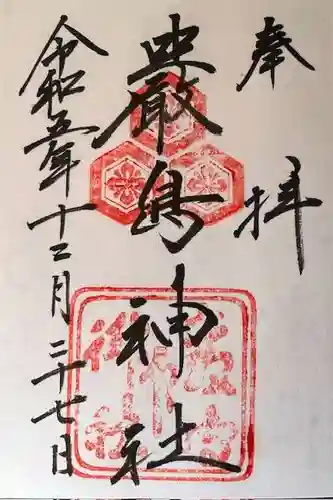 奉拝
嚴島神社
令和五年十二月二十七日